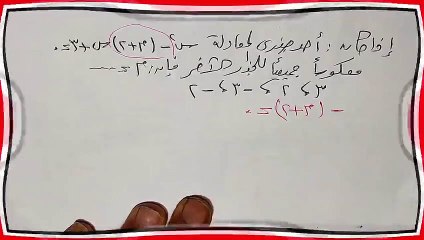 إذا كان : أحد جذرى المعادلة س² - (م + ٢) س + ٣ = ٠
معكوساً جمعياً للجذر الآخر فإن : م = ...
٣ ، ٢ ، -٣ ، -٢
- (م + ٢) = ٠